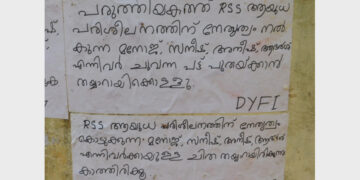 പരുത്തിയകത്ത് RSS ആയുധ
പരിശീലനത്തിന് നേതൃത്വം നൽ
കുന്ന മനോജ്, സനീഷ്, അനീഷ്, ആദർശ്
എന്നിവർ ചുവന്ന പട്ട് പുതയ്ക്കാൻ
തയ്യാറായിക്കൊള്ളൂ.
DYFI
RSS ആയുധ പരിശീലനത്തിന് നേതൃത്വം
കൊടുക്കുന്ന മനോജ്, സനീഷ്, അനീഷ്, ആദർശ്
എന്നിവർക്കായുള്ള ചിത തയ്യാറായിരിക്കുന്നു
കാത്തിരിക്കൂ